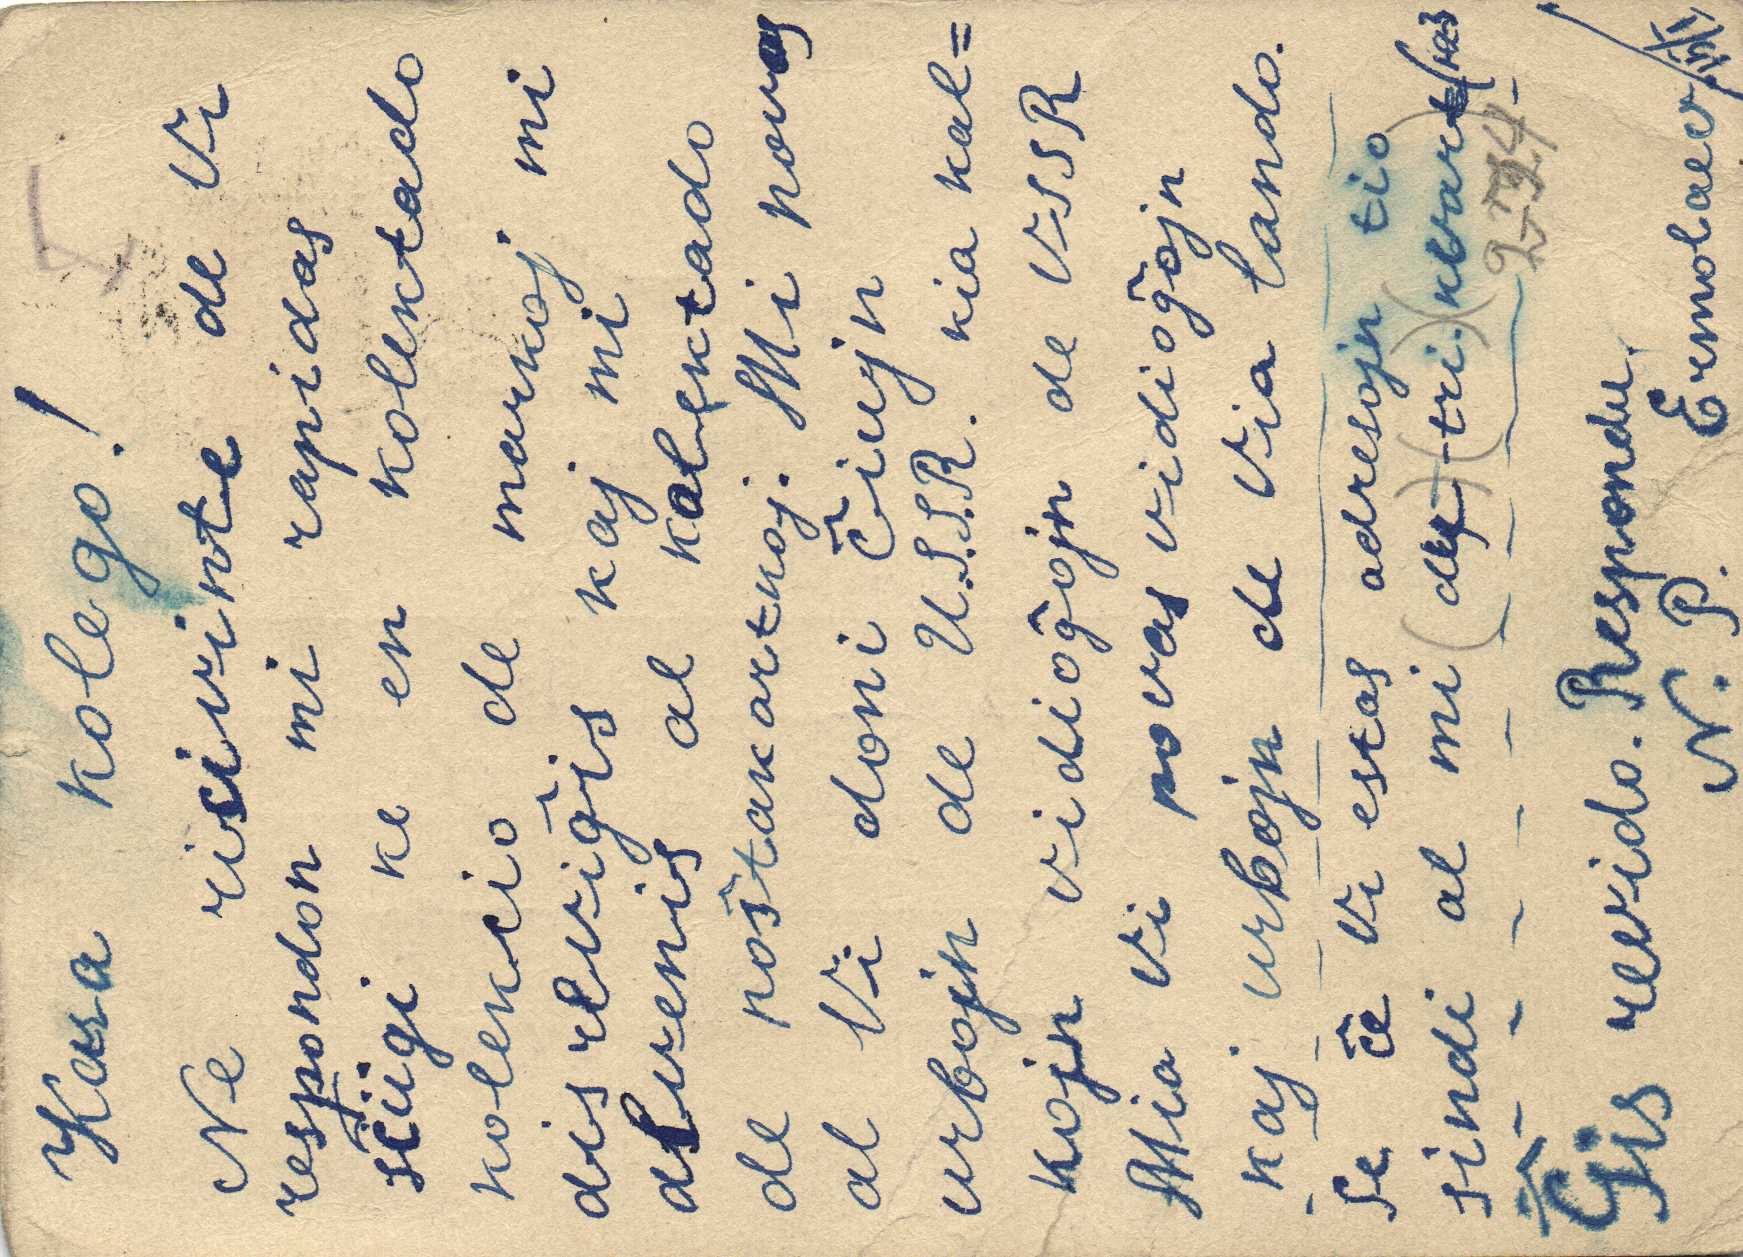 Kara kolego!
Ne ricivinte de Vi
respondon mi rapidas
sciigi ke en kolektado
kolekcio de markoj mi
disrevigis kaj mi
alvenis al kolektado
de poŝtkartoj. Mi povas
al Vi doni ĉiujn
urbojn de U.S.S.R. kia kal=
kojn vidioĝojn de USSR
Mia Vi povas vidioĝojn
kaj urbojn de Via lando.
Se ĉe Vi estas adresojn tio
sindi al mi (du)-(tri)(kvar
2-3,4
Ĝis revido. Respondu.
N. P. Ermolaev